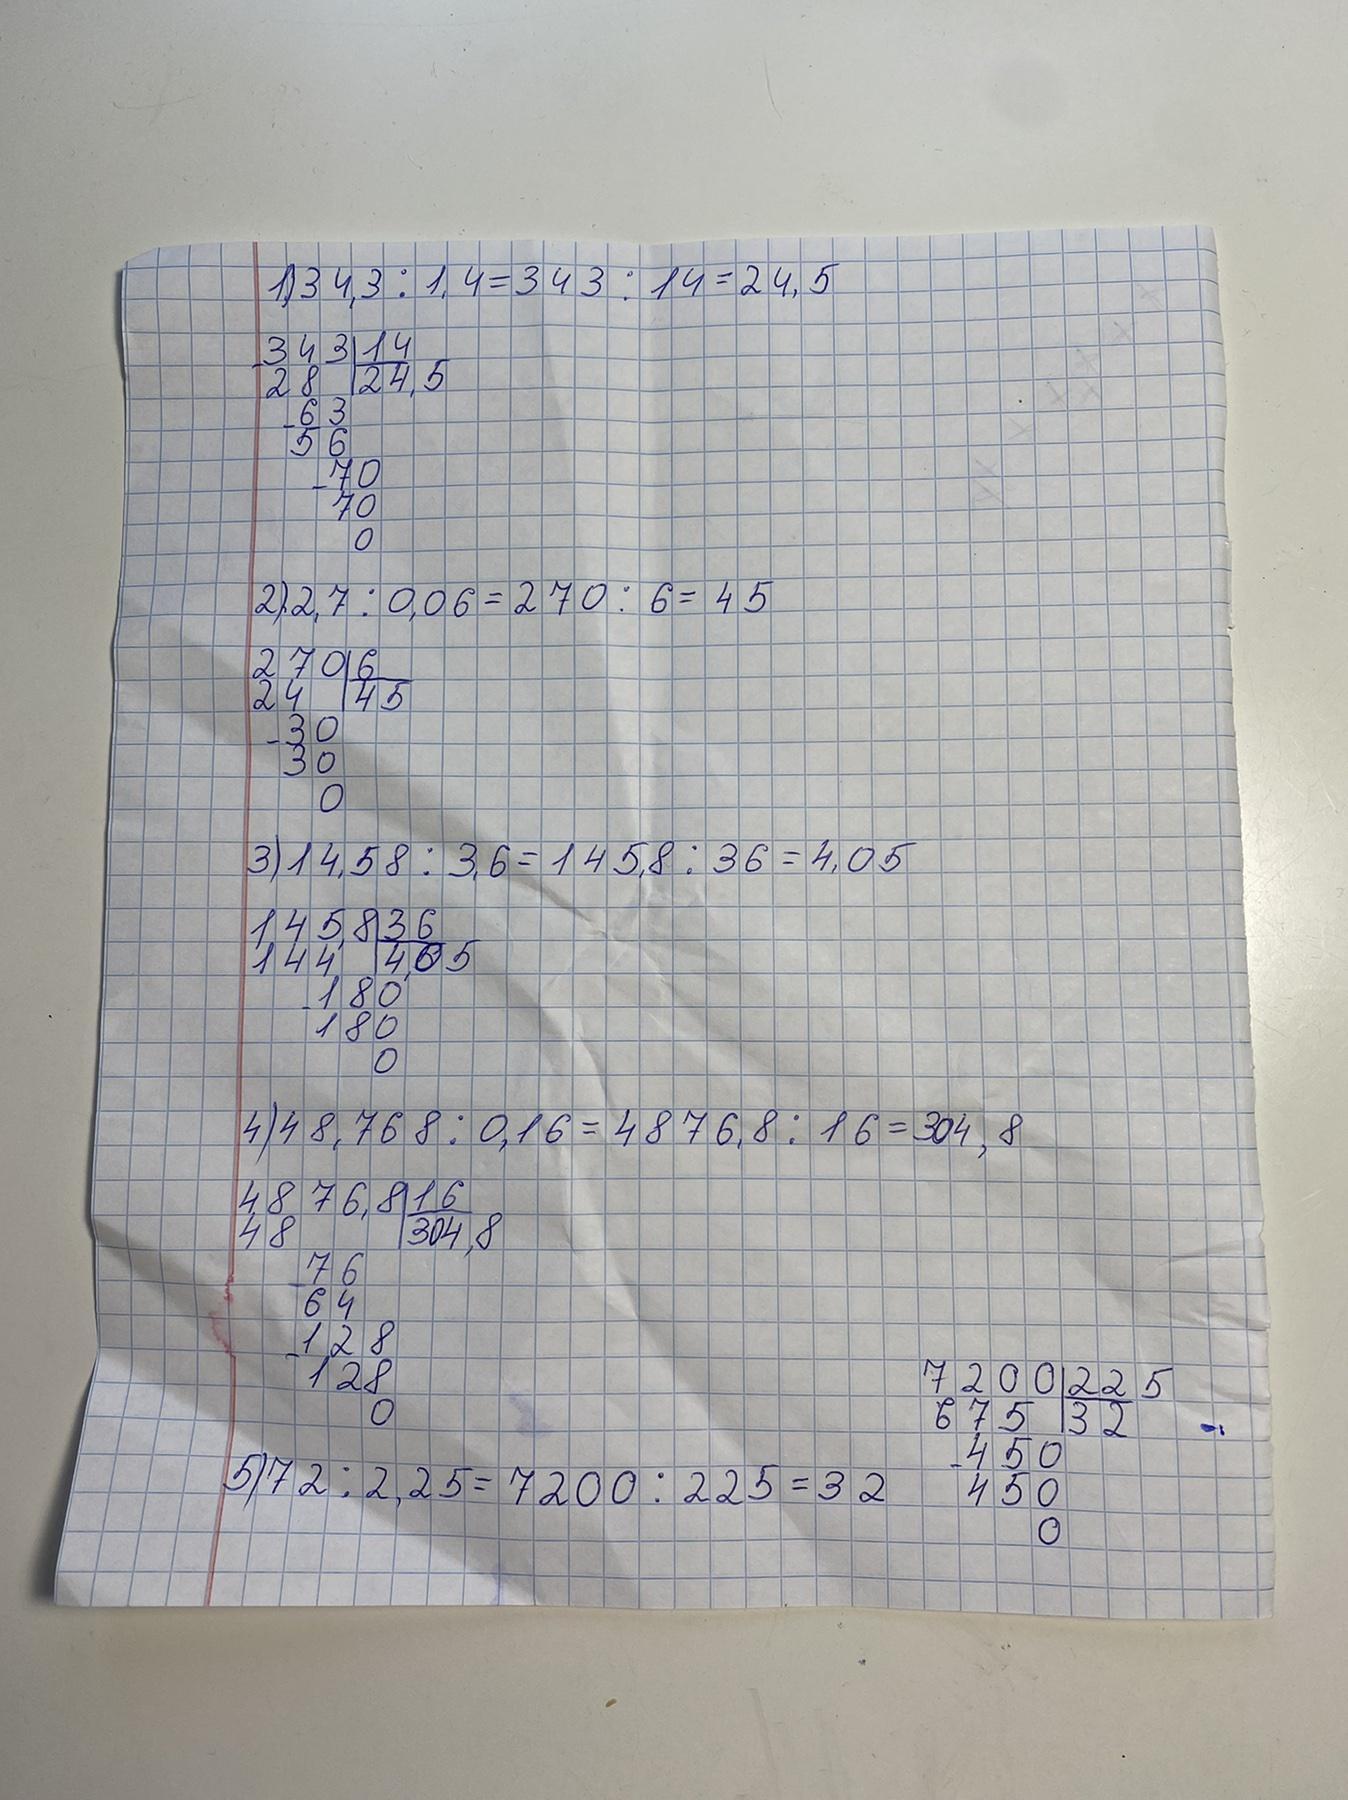 1) 34,3 : 1,4 = 343 : 14 = 24,5
-343|14
28 |24,5
-63
56
-70
70
0
2) 2,7 : 0,06 = 270 : 6 = 45
270|6
24 |45
-30
30
0
3) 14,58 : 3,6 = 145,8 : 36 = 4,05
145,8|36
144 |4,05
-180
180
0
4) 48,768 : 0,16 = 4876,8 : 16 = 304,8
4876,8|16
48 |304,8
-76
64
-128
128
0
5) 72 : 2,25 = 7200 : 225 = 32
7200|225
675 |32
-450
450
0